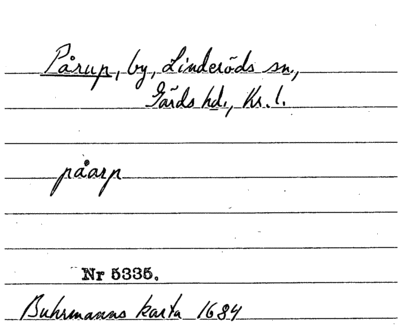 Pårup, by, Linderöds sn.,
Gärds hd., Kr. l.
påarp
Nr 5335.
Buhrmanns karta 1684